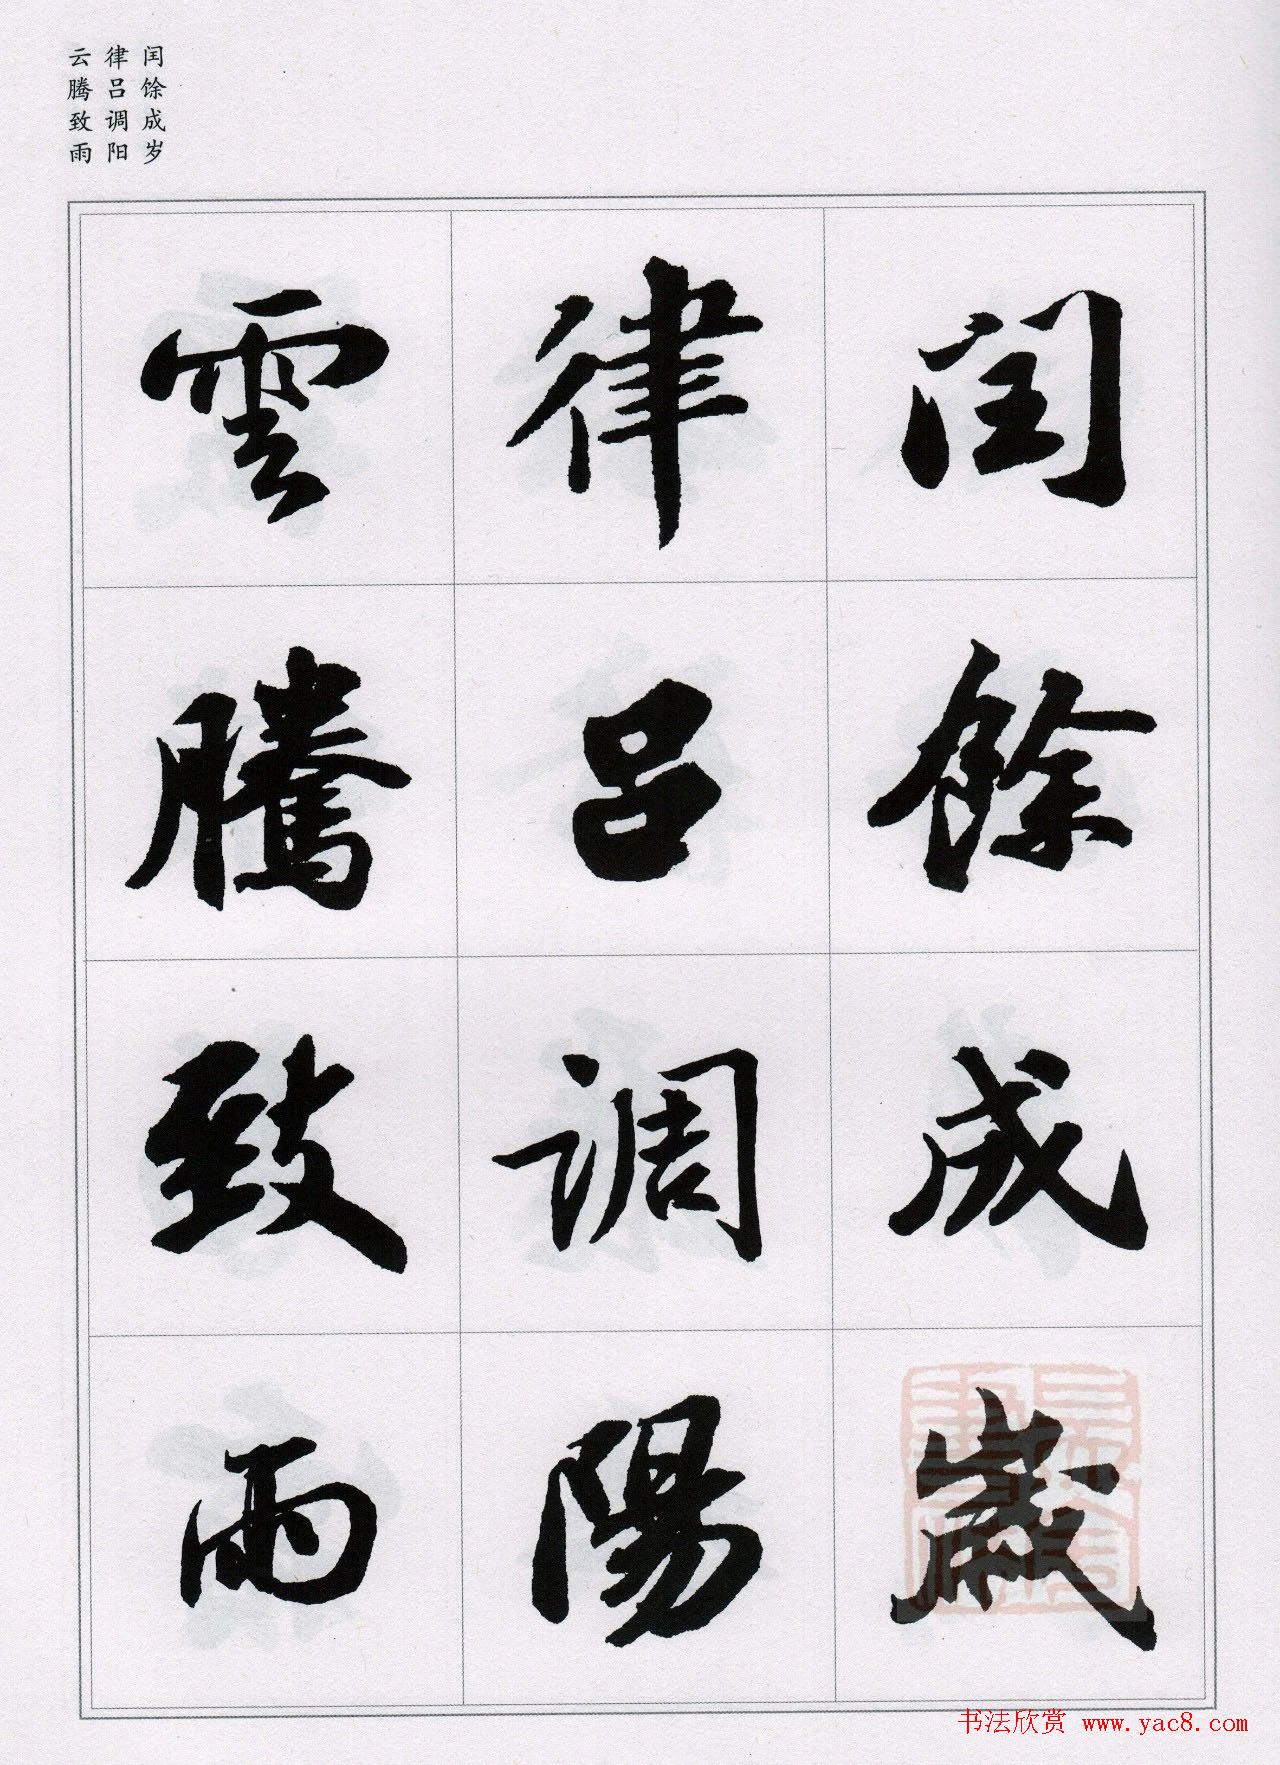 闰馀成岁
律吕调阳
云腾致雨
閏餘成歲
律呂調陽
雲騰致雨
书法欣赏 www.yac8.com